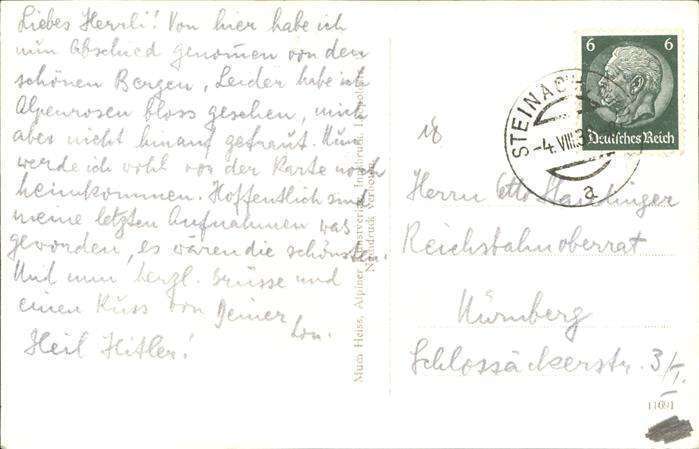 Liebes Herrli! Von hier habe ich
nun Abschied genommen von den
schönen Bergen, Leider habe ich
Alpenrosen bloss gesehen, mich
aber nicht hinauf getraut. Nun
werde ich wohl vor der Karte noch
heimkommen. Hoffentlich sind
meine letzten Aufnahmen was
geworden, es waren die schönsten.
Und nun herzl. Grüsse und
einen Kuss von Deiner
Heil Hitler!
Mum Heiss, Alpiner Kunstverlag, Innsbruck,
Nachdruck verboten
6 6
Deutsches Reich
STEINACH
-4.VIII.3
a
18
Herrn Otto
Reichsbahnoberrat
Nürnberg
Schlossäckerstr. 3/I.
11691